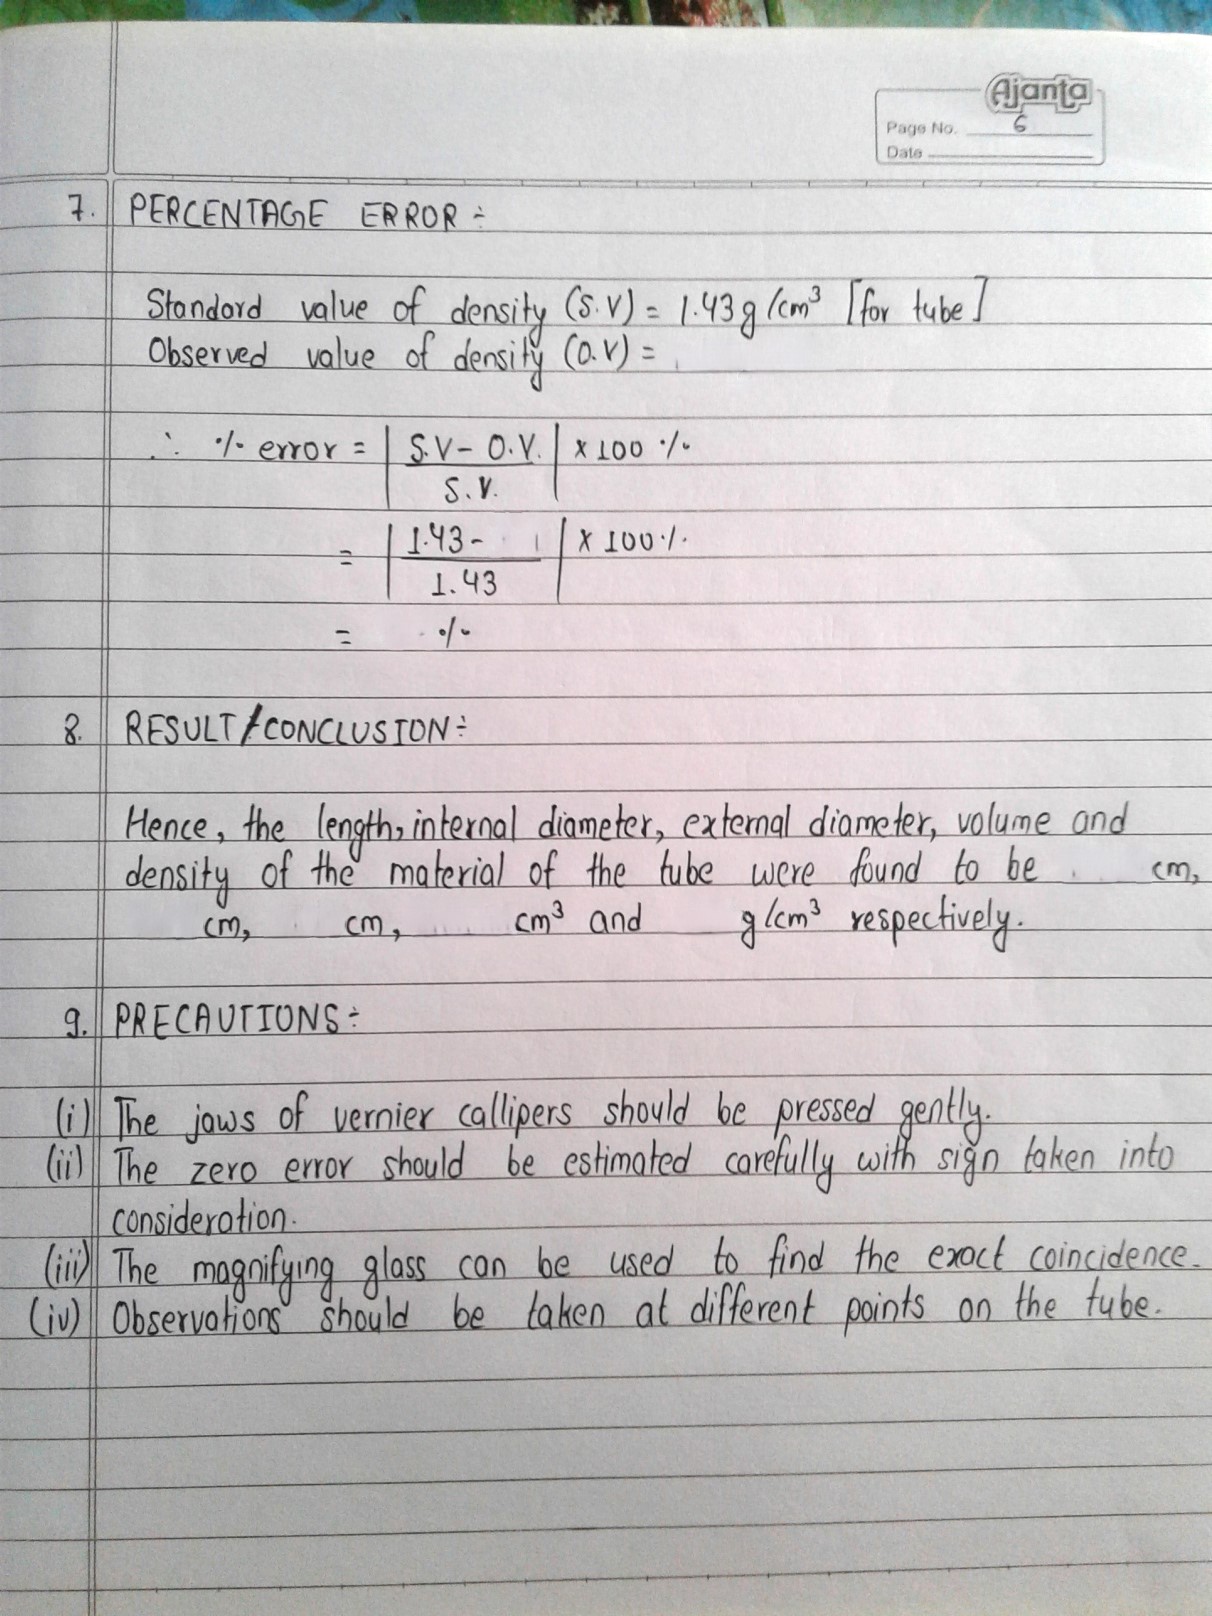 Ajanta
Page No. 6
Date
7. PERCENTAGE ERROR :-
Standard value of density (S.V) = 1.43 g/cm³ [for tube]
Observed value of density (O.V) =
∴ % error = | S.V - O.V. / S.V. | × 100 %
= | 1.43 - / 1.43 | × 100 %
= %
8. RESULT/CONCLUSION :-
Hence, the length, internal diameter, external diameter, volume and
density of the material of the tube were found to be cm,
cm, cm, cm³ and g/cm³ respectively.
9. PRECAUTIONS :-
(i) The jaws of vernier callipers should be pressed gently.
(ii) The zero error should be estimated carefully with sign taken into
consideration.
(iii) The magnifying glass can be used to find the exact coincidence.
(iv) Observations should be taken at different points on the tube.